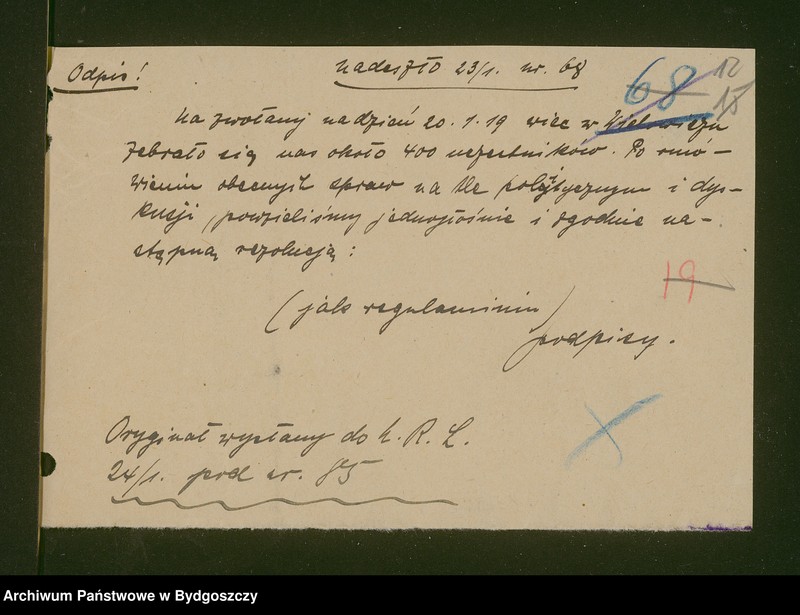 Odpis!
Nadeszło 23/1. nr. 68
68
12
18
Na zwołany na dzień 20.1.19 wiec w
zebrało się nas około 400 uczestników. Po omó-
wieniu obecnych spraw na tle politycznym i dys-
kusji, powzieliśmy jednogłośnie i zgodnie na-
stępną rezolucją:
19
(jak regulaminu)
podpisy.
Oryginał wysłany do N. R. L.
24/1. pod nr. 85
Archiwum Państwowe w Bydgoszczy